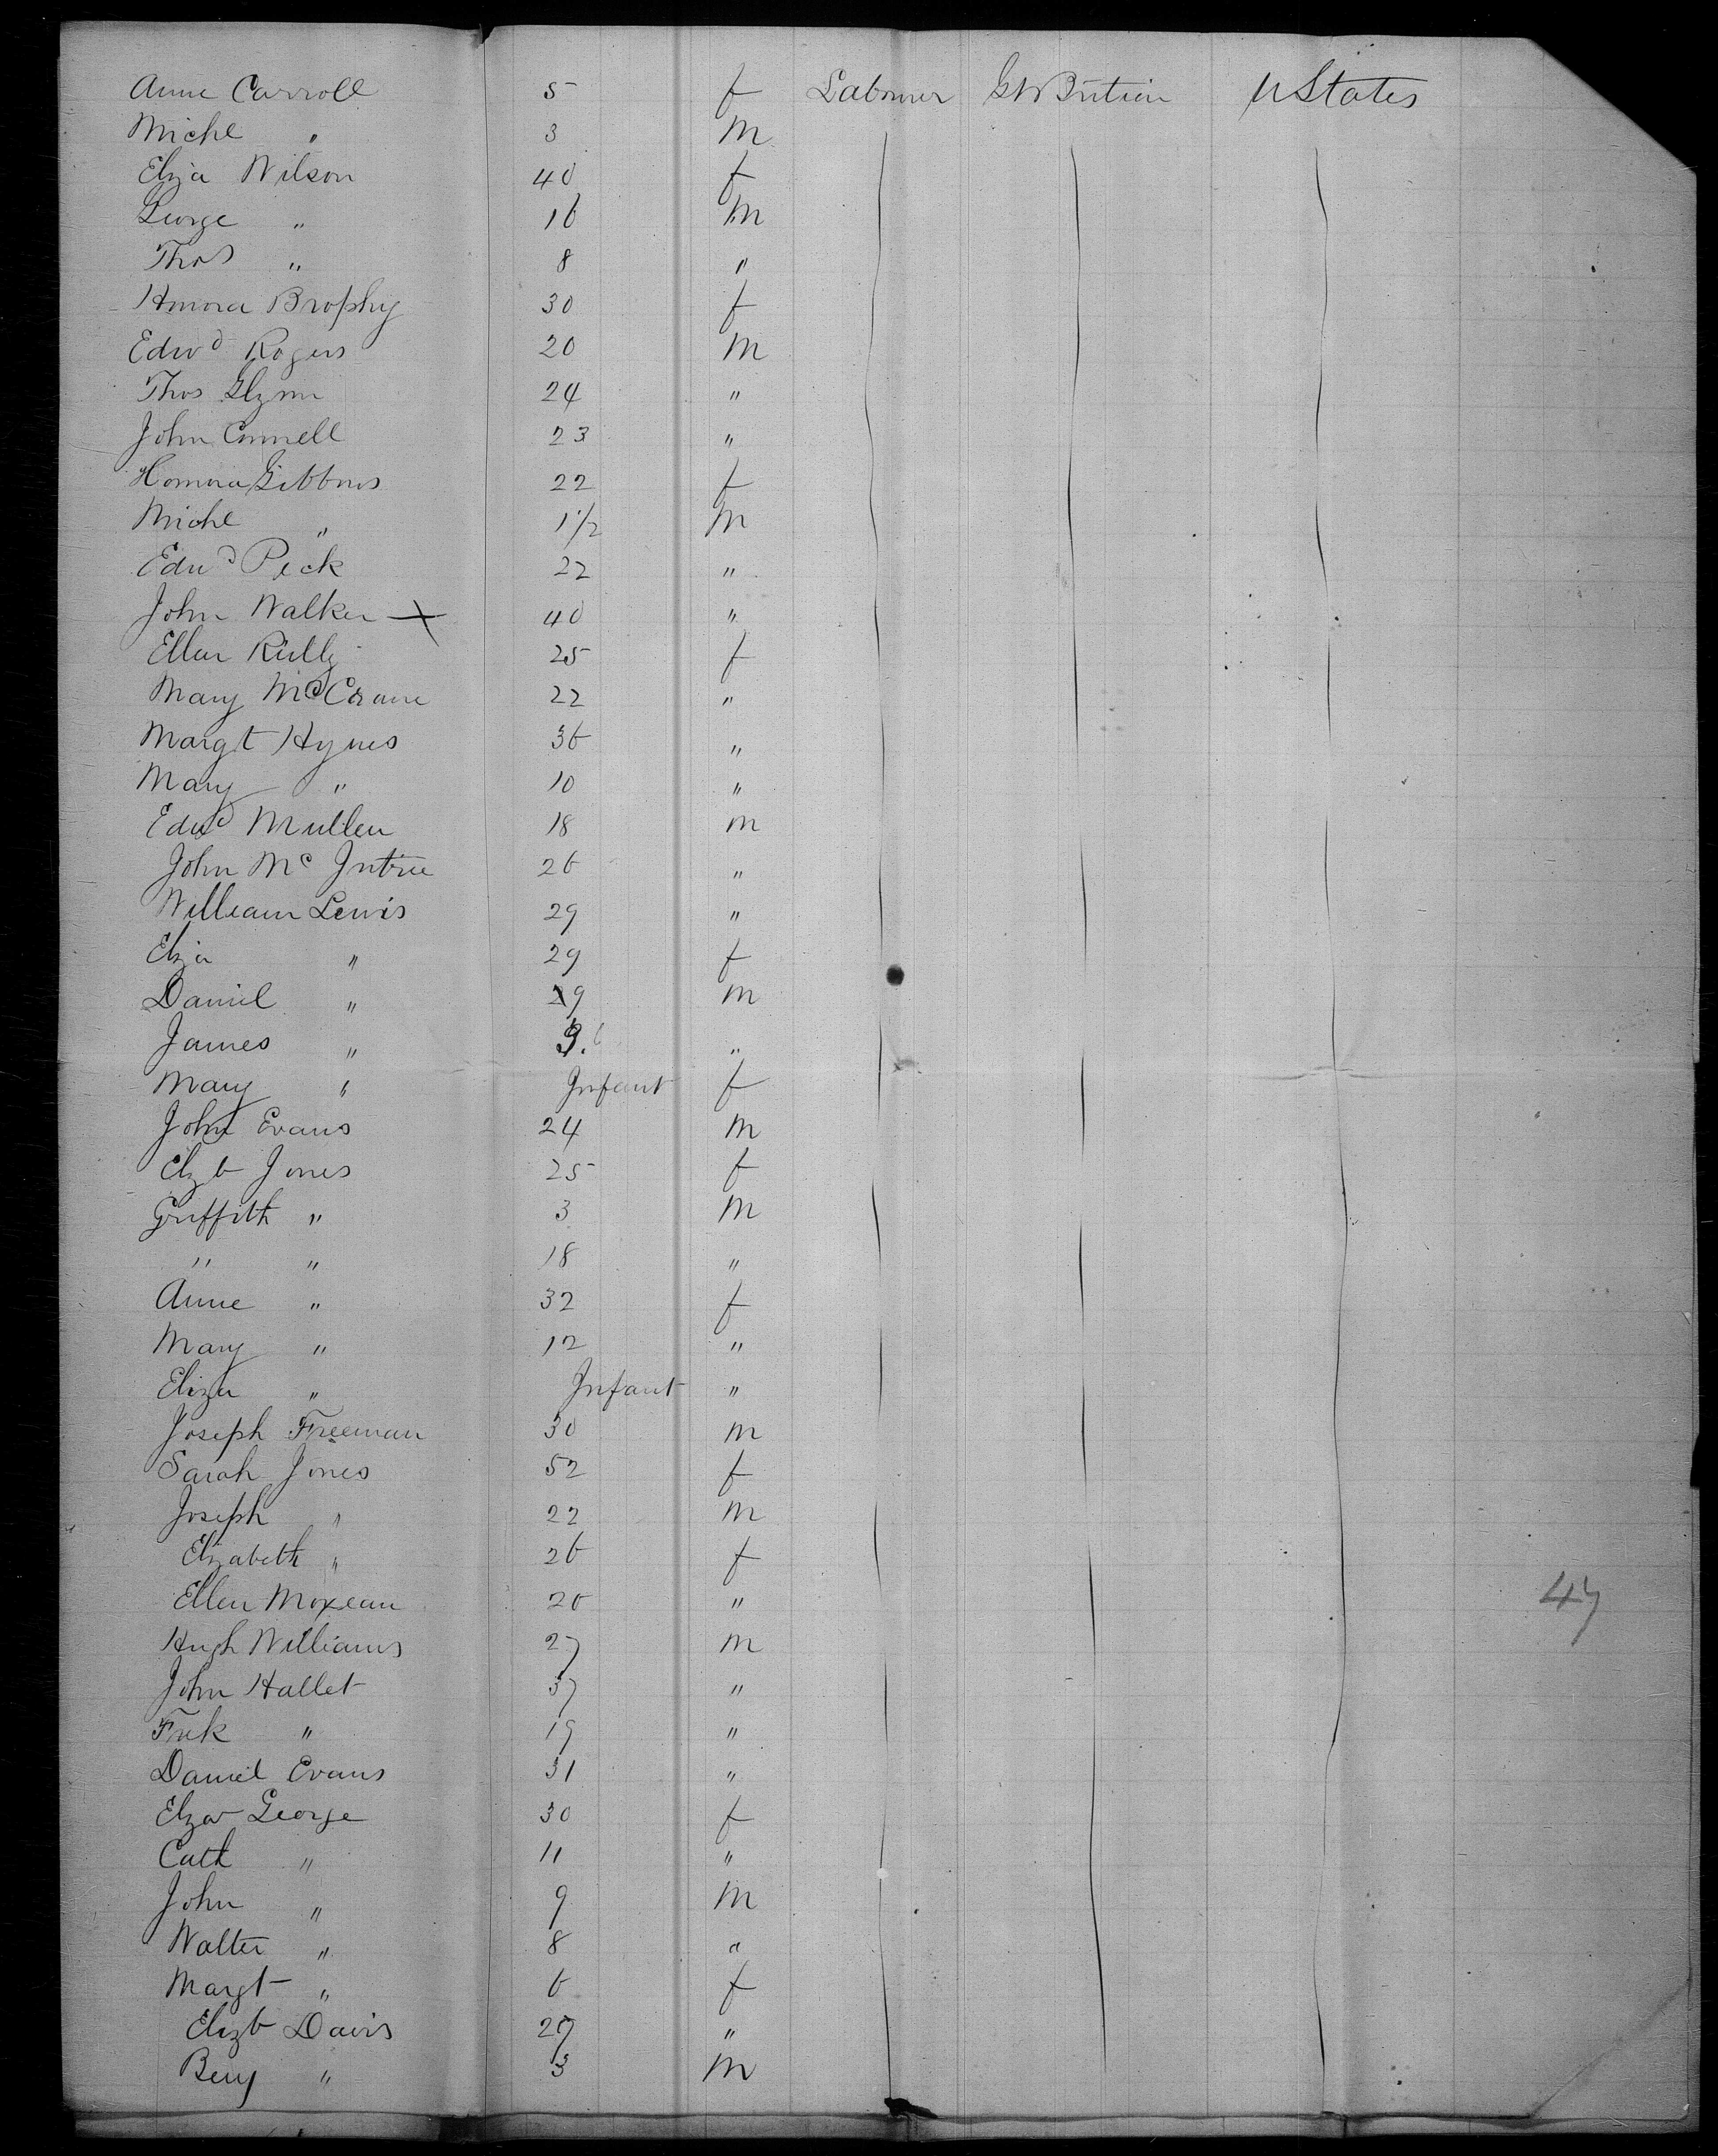 Anne Carroll 5 f Labourer Gt Britain U States
Michl " 3 M
Eliza Wilson 40 f
George " 16 M
Thos " 8 "
Honora Brophy 30 f
Edwd Rogers 20 M
Thos Glynn 24 "
John Connell 23 "
Honora Gibbons 22 f
Michl " 1 1/2 M
Edwd Peck 22 "
John Walker X 40 "
Ellen Reilly 25 f
Mary McCrane 22 "
Margt Hynes 36 "
Mary " 10 "
Edwd Mullen 18 m
John Mc Intire 26 "
William Lewis 29 "
Eliza " 29 f
Daniel " 9 m
James " 3. "
Mary " Infant f
John Evans 24 m
Elzb Jones 25 f
Griffith " 3 M
" " 18 "
Anne " 32 f
Mary " 12 "
Eliza " Infant "
Joseph Freeman 30 m
Sarah Jones 52 f
Joseph " 22 m
Elizabeth " 26 f
Ellen 20 "
Hugh Williams 27 m
John Hallet 37 "
Fredk " 19 "
Daniel Evans 31 "
Elza George 30 f
Cath " 11 "
John " 9 M
Walter " 8 "
Margt " 6 f
Elizb Davis 29 "
Benj " 3 M
47